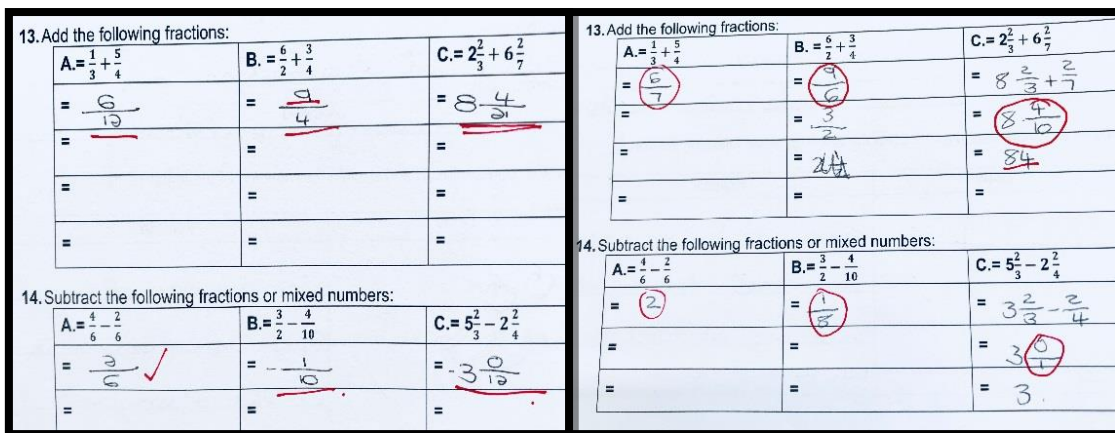 13. Add the following fractions:
A.= 1/3 + 5/4
B. = 6/2 + 3/4
C.= 2 2/3 + 6 2/7
= 6/12
= 9/4
= 8 4/21
=
=
=
=
=
=
=
=
=
14. Subtract the following fractions or mixed numbers:
A.= 4/6 − 2/6
B.= 3/2 − 4/10
C.= 5 2/3 − 2 2/4
= 2/6
= - 1/10
= - 3 0/12
=
=
=
13. Add the following fractions:
A.= 1/3 + 5/4
B. = 6/2 + 3/4
C.= 2 2/3 + 6 2/7
= 6/7
= 9/6
= 8 2/3 + 2/7
=
= 3/2
= 8 4/10
=
=
= 84
=
=
=
14. Subtract the following fractions or mixed numbers:
A.= 4/6 − 2/6
B.= 3/2 − 4/10
C.= 5 2/3 − 2 2/4
= 2
= 1/8
= 3 2/3 − 2/4
=
=
= 3 0/1
=
=
= 3.